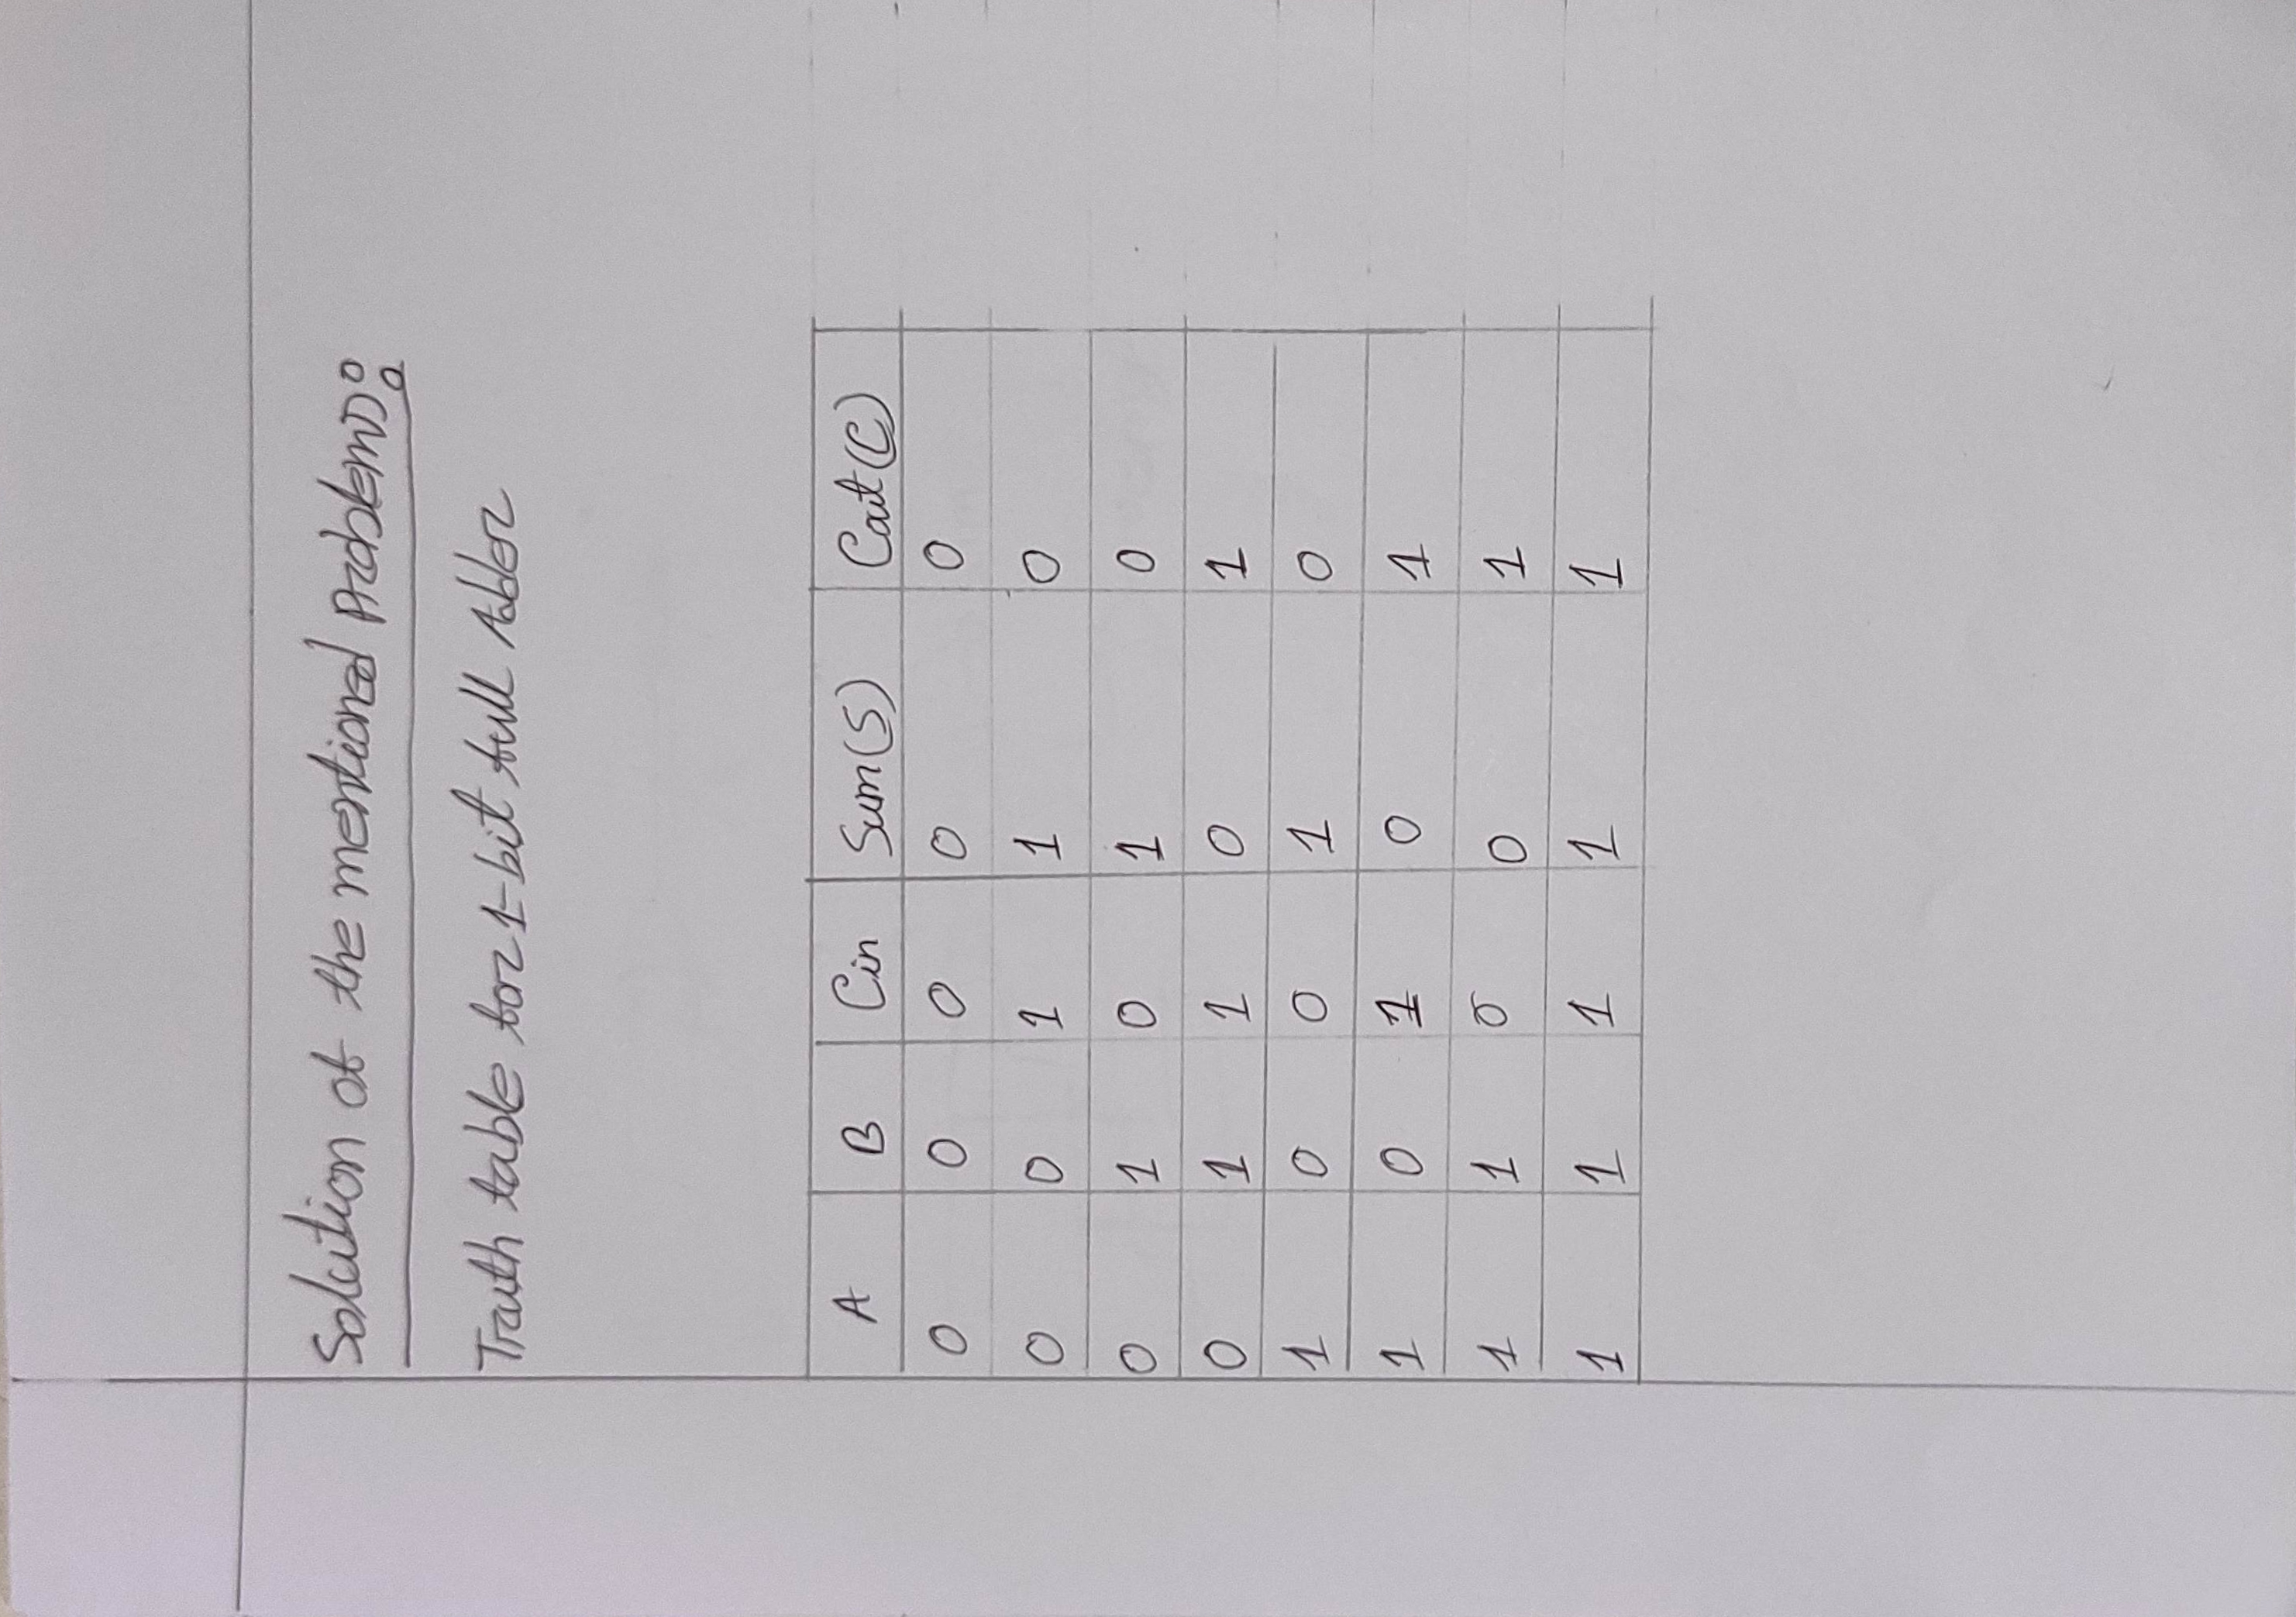 Solution of the mentioned problems:
Truth table for 1-bit full Adder
A B Cin Sum(S) Cout(C)
0 0 0 0 0
0 0 1 1 0
0 1 0 1 0
0 1 1 0 1
1 0 0 1 0
1 0 1 0 1
1 1 0 0 1
1 1 1 1 1